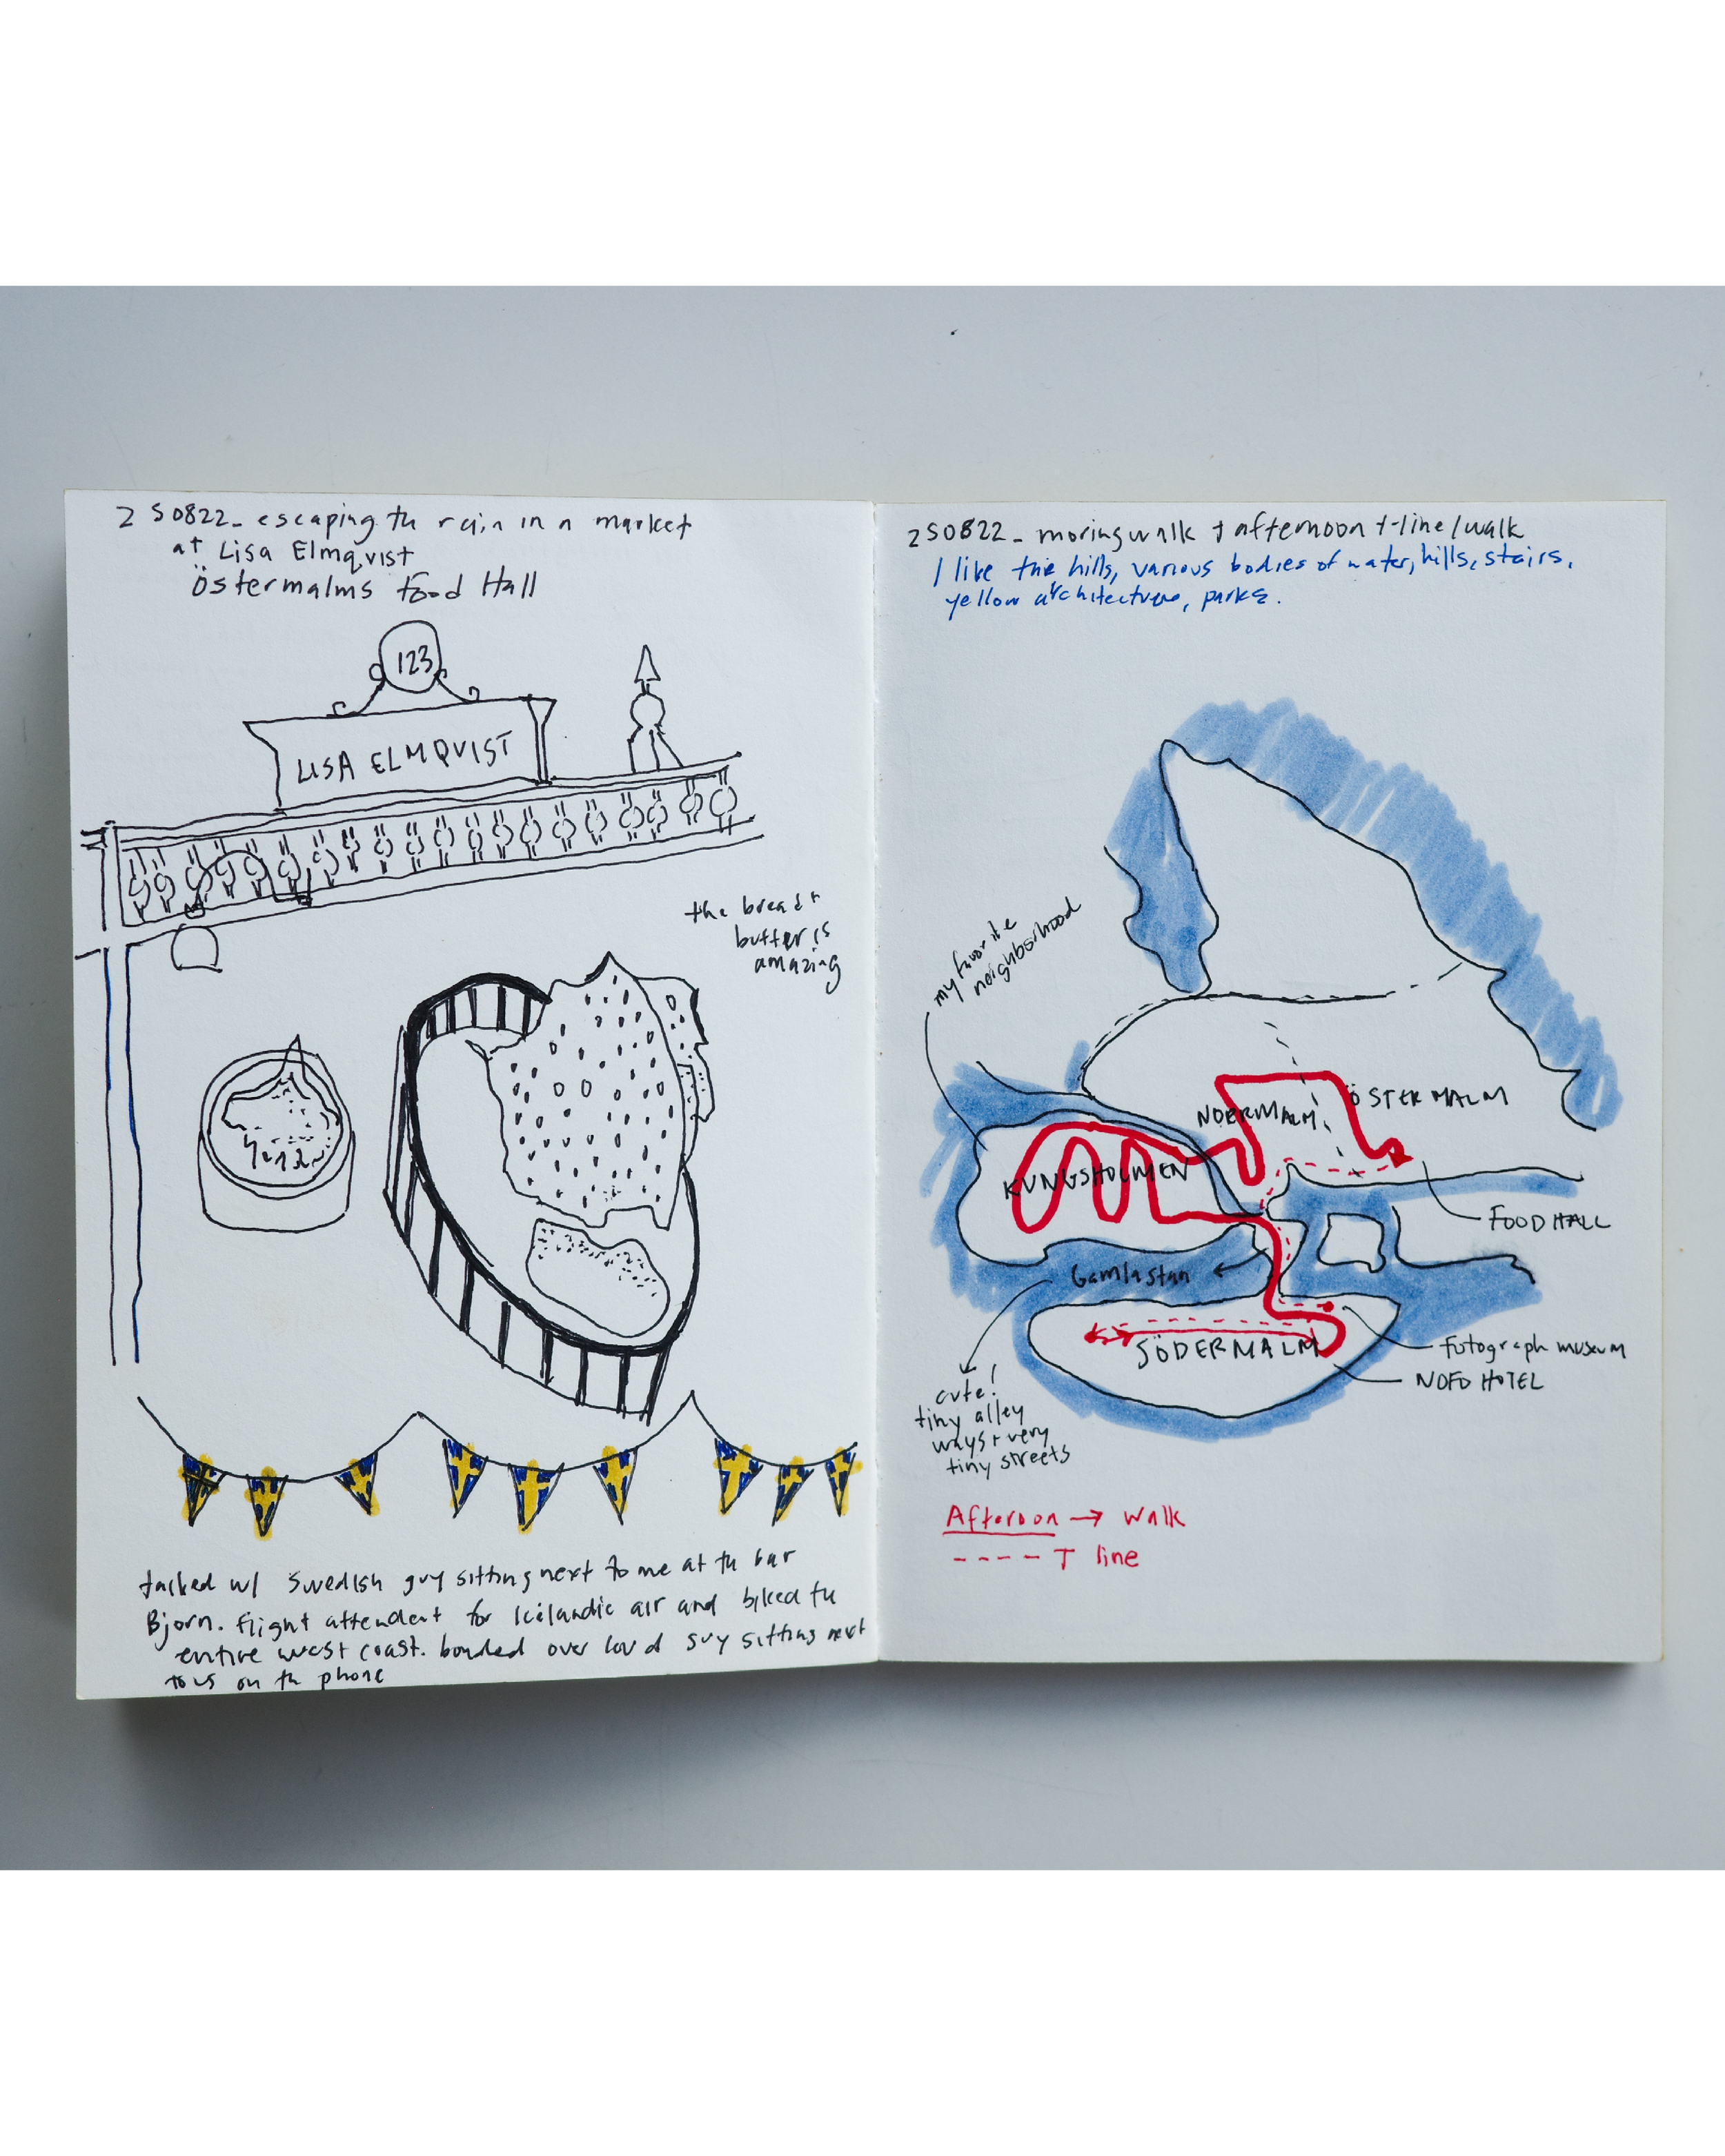 250822_ escaping th rain in a market
at Lisa Elmqvist
Östermalms Food Hall
123
LISA ELMQVIST
the bread +
butter is
amazing
talked w/ Swedish guy sitting next to me at th bar
Bjorn. Flight attendent for Icelandic air and biked th
entire west coast. bonded over loud guy sitting next
to us on th phone
250822_ moring walk + afternoon t-line/walk
I like the hills, various bodies of water, hills, stairs,
yellow architecture, parks.
my favorite
neighborhood
NORRMALM
ÖSTERMALM
KUNGSHOLMEN
FOOD HALL
Gamlastan
SÖDERMALM
fotograph museum
NOFO HOTEL
cute!
tiny alley
ways + very
tiny streets
Afternoon → walk
---- T line